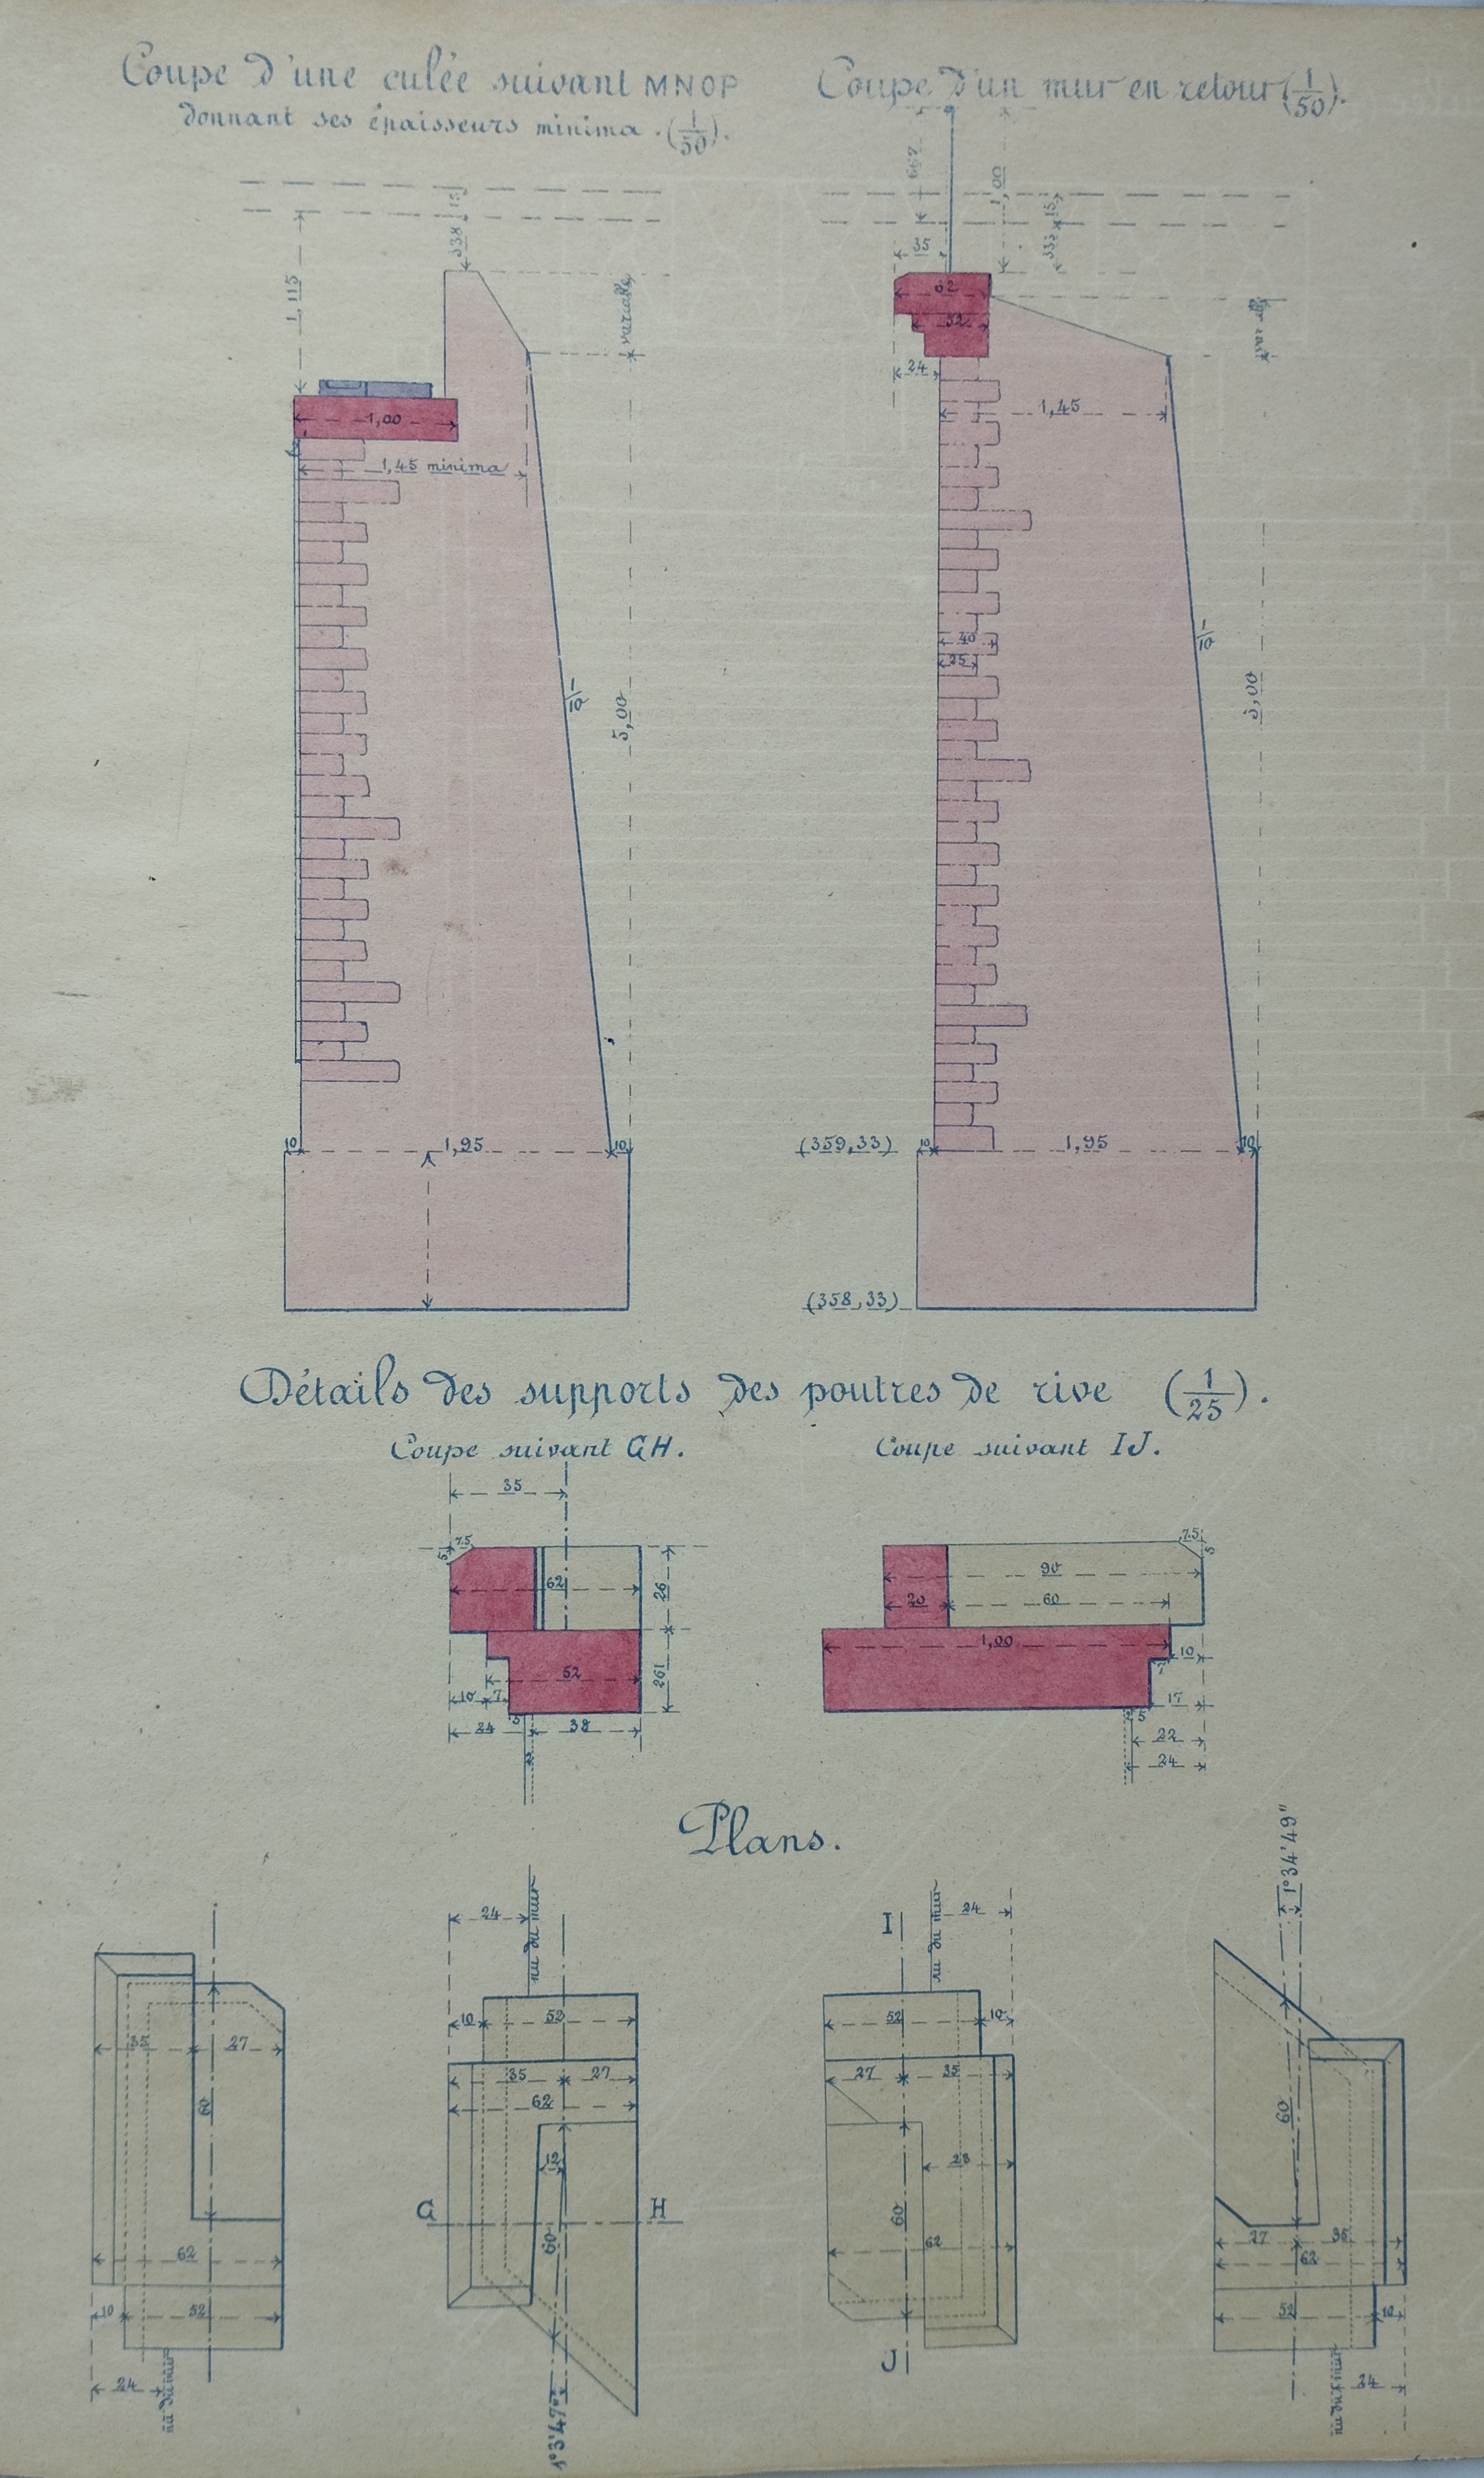 Coupe d'une culée suivant MNOP
donnant ses épaisseurs minima. (1/50).
Coupe d'un mur en retour (1/50).
338 15
1,115
variable
1,00
1,45 minima
1/10
5,00
10 1,95 10
667
1,00
15
35
62
52
24
1,45
40
25
1/10
5,00
(359,33) 10 1,95 10
(358,33)
Détails des supports des poutres de rive (1/25).
Coupe suivant GH.
35
7.5
5
62
26
52
261
10 7
5
24 38
2
Coupe suivant IJ.
7.5
5
90
20 60
1,00
10
17
5
22
24
Plans.
35 27
60
62
10 52
24
nu du mur
24
nu du mur
10 52
35 27
62
12
G H
60
1°3'47"
I
nu du mur
24
52 10
27 35
28
60
62
J
1°34'49"
60
27 35
62
52 10
nu du mur
24